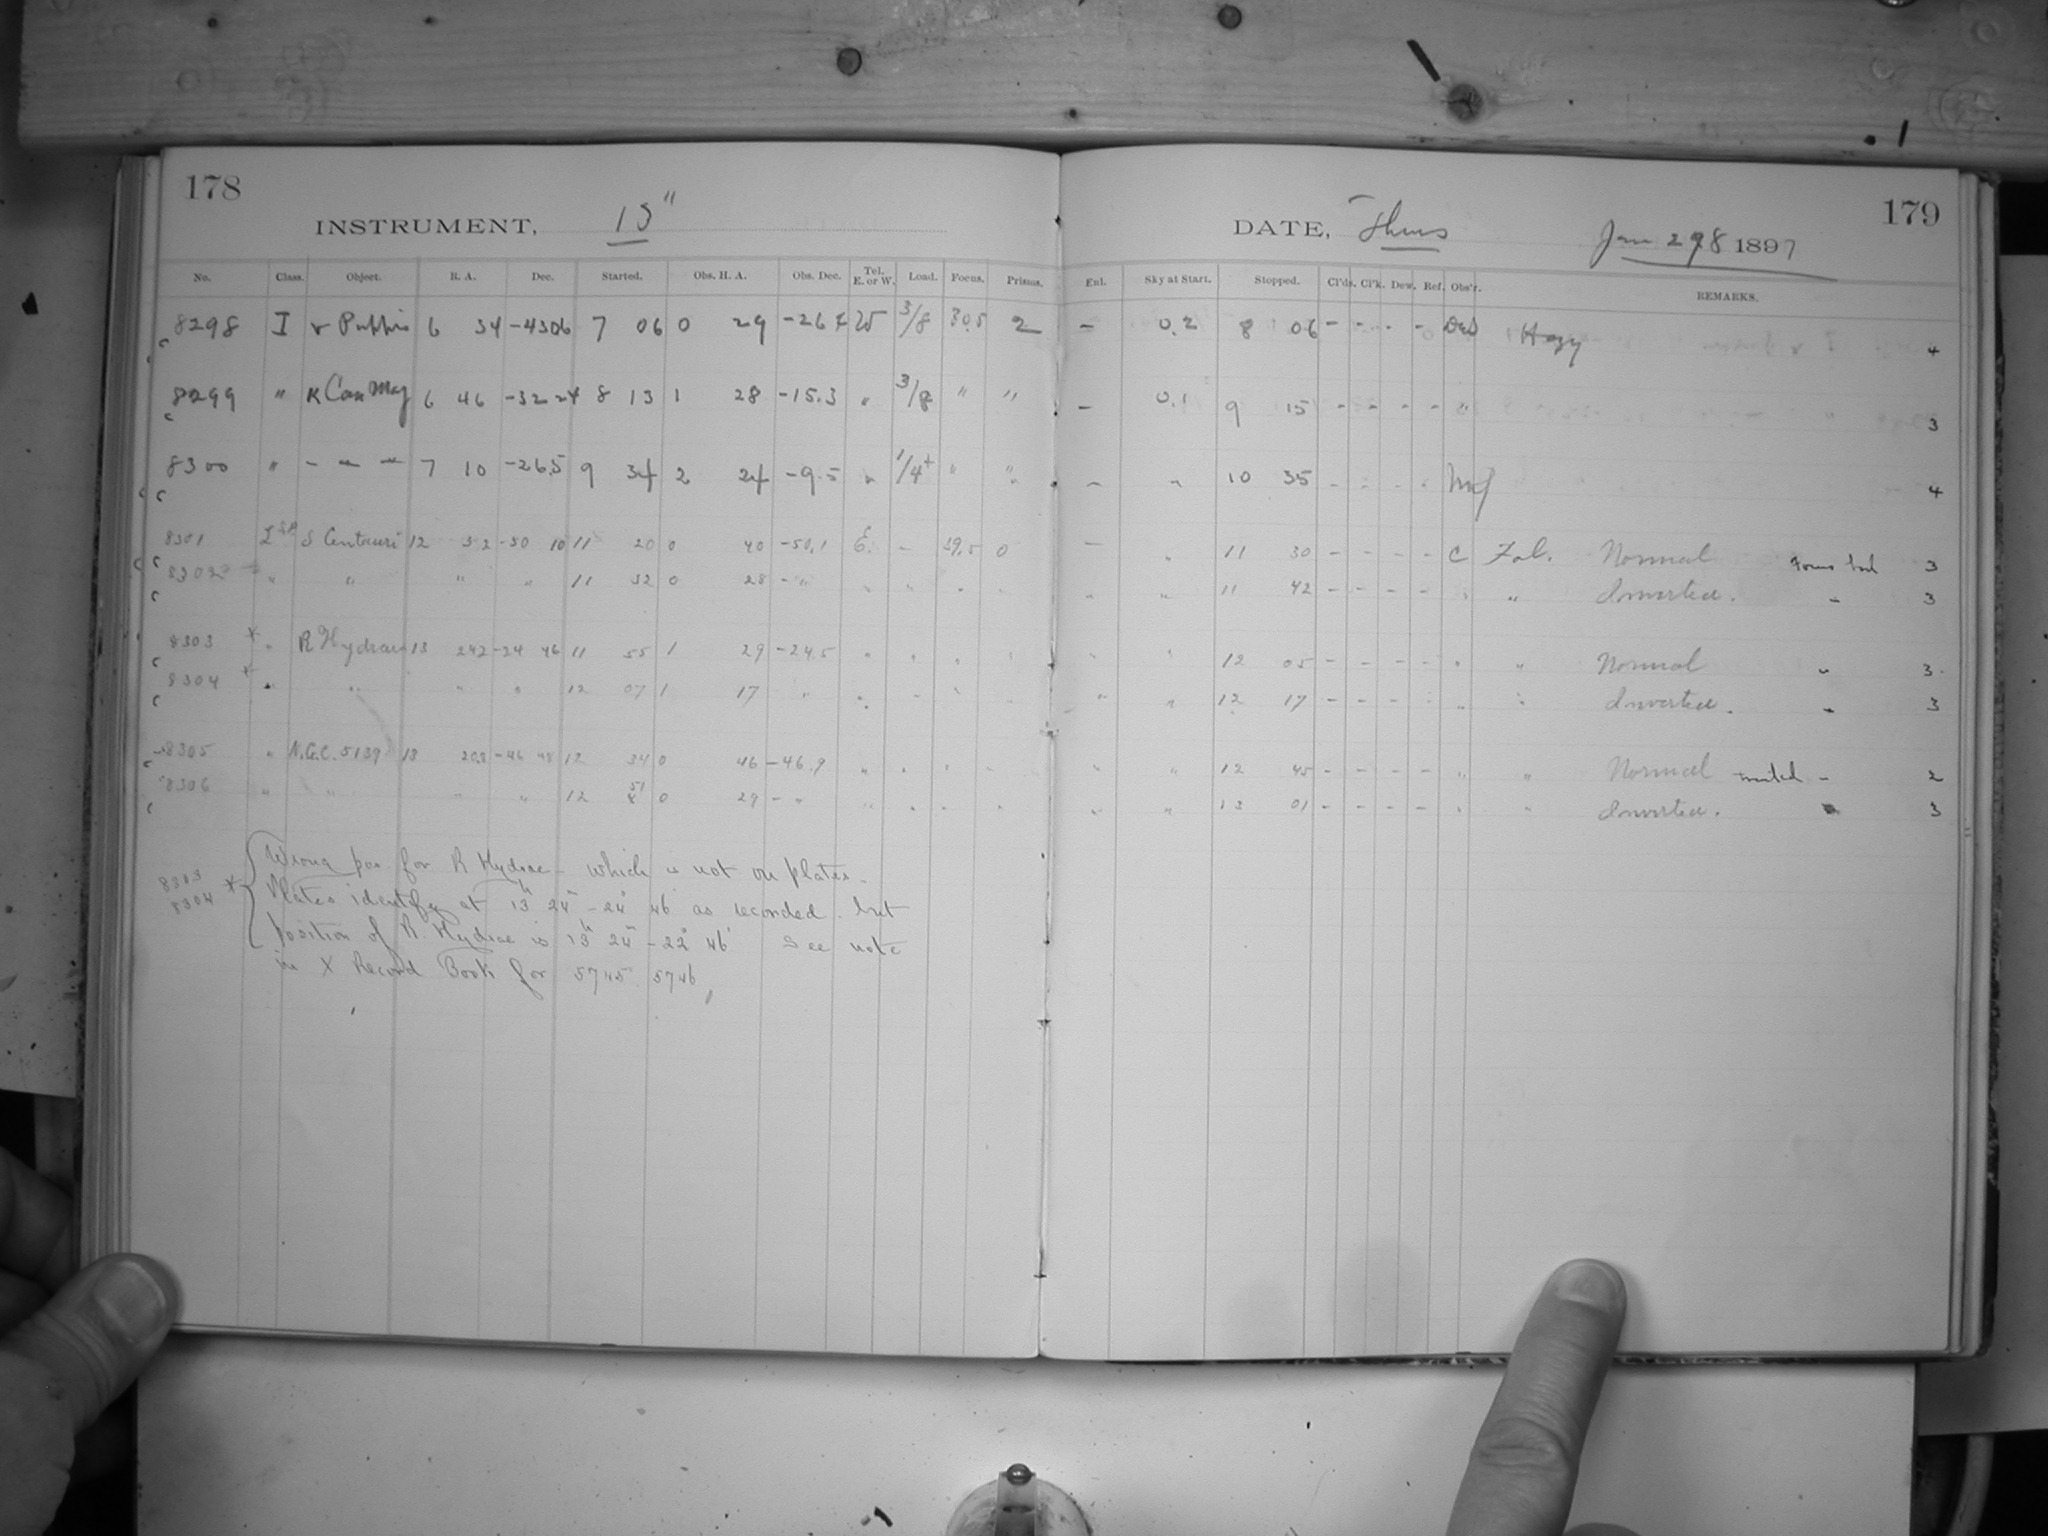 178
INSTRUMENT, 13"
No. Class. Object. R. A. Dec. Started. Obs. H. A. Obs. Dec. Tel. E. or W. Load. Focus. Prisms.
8298 I ν Puppis 6 34 -43 06 7 06 0 29 -26.4 W 3/8 30.5 2
8299 " K Can Maj 6 46 -32 24 8 13 1 28 -15.3 " 3/8 " "
8300 " - - - 7 10 -26.5 9 34 2 24 -9.5 " 1/4+ " "
8301 S Centauri 12 32 -50 10 11 20 0 40 -50.1 E. - 39.5 0
8302 " " " " 11 32 0 28 - "
8303 * " R Hydrae 13 24.2 -24 46 11 55 1 29 -24.5 " " " "
8304 * " " " " 12 07 1 17 " " " "
8305 " N.G.C. 5139 13 20.8 -46 48 12 34 0 46 -46.9 " " " "
8306 " " " " 12 51 0 29 - " " " " "
8303 8304 * Wrong pos. for R Hydrae - which is not on plates.
Plates identify at 13h 24m -24° 46' as recorded. but
position of R. Hydrae is 13h 24m -22° 46' See note
in X Record Book for 5745 5746
179
DATE, Thurs Jan 28 1897
Enl. Sky at Start. Stopped. Cl'ds. Cl'k. Dew. Ref. Obs'r. REMARKS.
- 0.2 8 06 - - - - Hazy 4
- 0.1 9 15 - - - - " 3
- " 10 35 - - - - 4
- " 11 30 - - - - C Normal Focus bad 3
" " 11 42 - - - - " " Inverted. " 3
" " 12 05 - - - - " " Normal " 3
" " 12 17 - - - - " " Inverted. " 3
" " 12 45 - - - - " " Normal - 2
" " 13 01 - - - - " " Inverted. 3